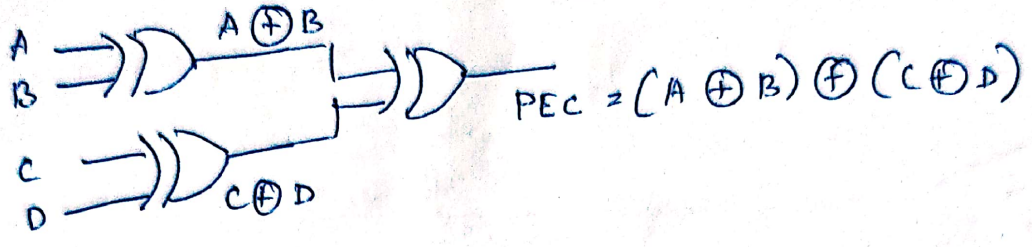 A
B
A ⊕ B
C
D
C ⊕ D
PEC = (A ⊕ B) ⊕ (C ⊕ D)